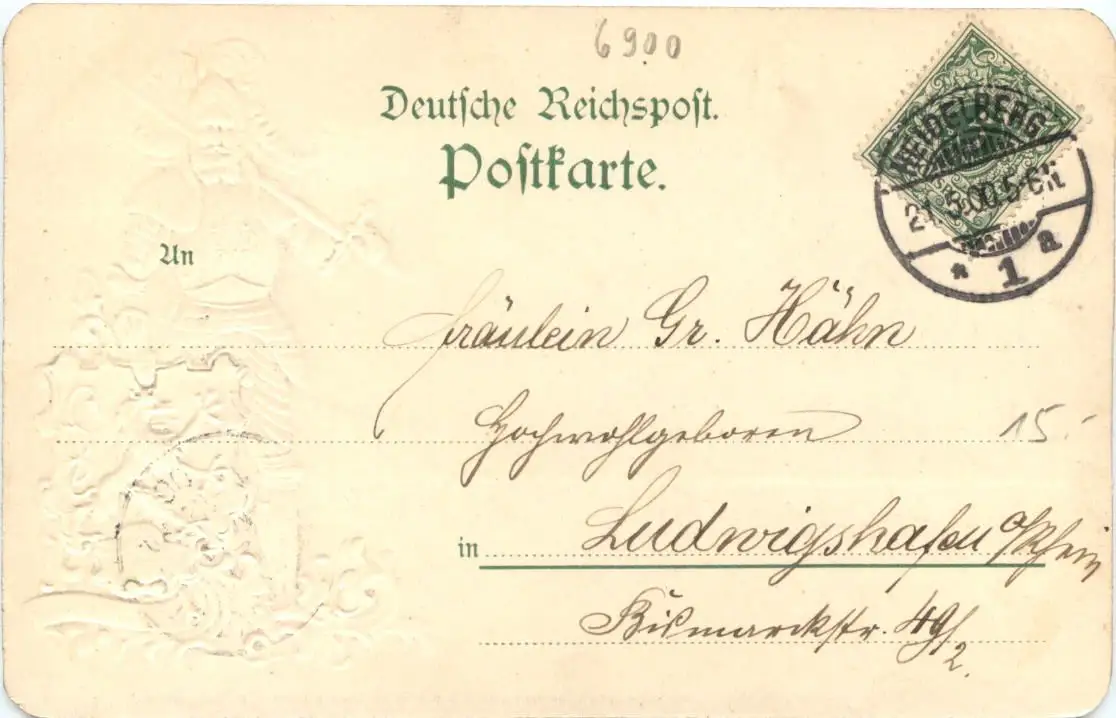 6900
Deutsche Reichspost.
Postkarte.
HEIDELBERG
21.5.00.5-6N.
* 1 a
An
Fräulein Gr. Hähn
Hochwohlgeboren
15.
in Ludwigshafen a/Rhein
Bismarckstr. 49/2.